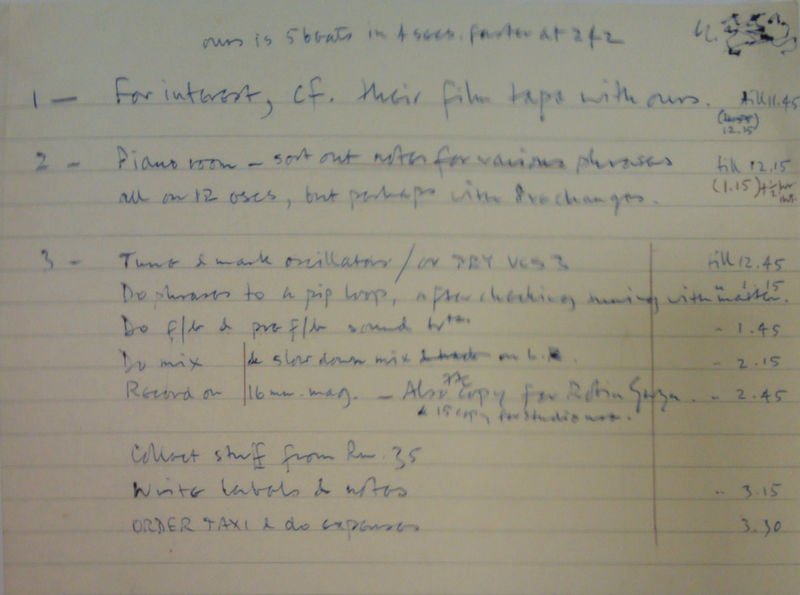 ours is 5 beats in 4 secs. faster at 2 f 2
1 — For interest, cf. their film tape with ours. till 11.45
12.15
2 - Piano room – sort out notes for various phrases till 12.15
all on 12 oscs, but perhaps with 8ve changes. (1.15)
3 - Tune & mark oscillators / or TRY VCS 3 till 12.45
Do phrases to a pip loop, after checking running with master. " 1.15
Do f/b & pre f/b sound - 1.45
Do mix & slow down mix on - 2.15
Record on 16 mm. mag. – Also copy for Robin - 2.45
& 15 copy for studio use.
Collect stuff from Rm. 35
Write labels & notes .. 3.15
ORDER TAXI & do expenses 3.30